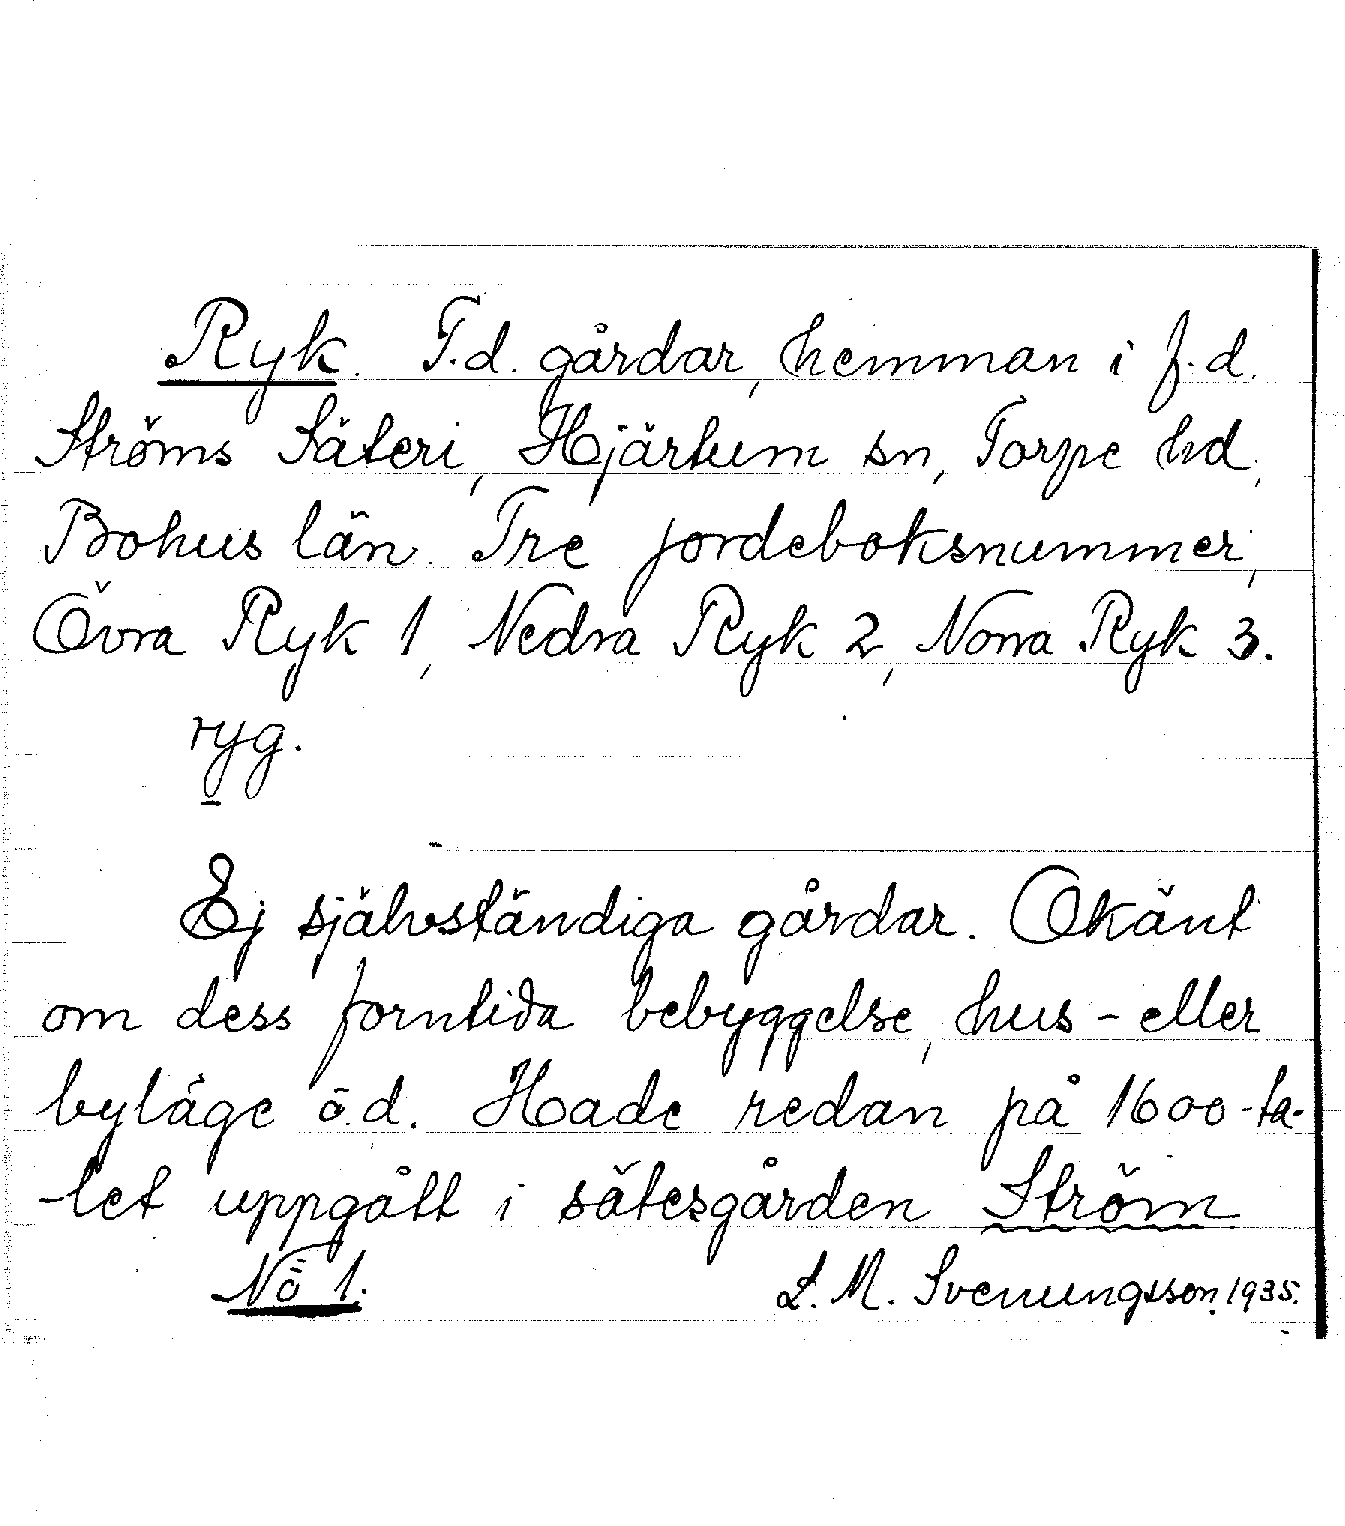 Ryk. F.d. gårdar, hemman i f.d.
Ströms Säteri, Hjärtum sn, Torpe hd,
Bohus län. Tre jordeboksnummer,
Övra Ryk 1, Nedra Ryk 2, Norra Ryk 3.
ryg.
Ej självständiga gårdar. Okänt
om dess forntida bebyggelse, hus- eller
byläge o.d. Hade redan på 1600-ta-
let uppgått i sätesgården Ström
No 1. L. M. Svenungsson, 1935.